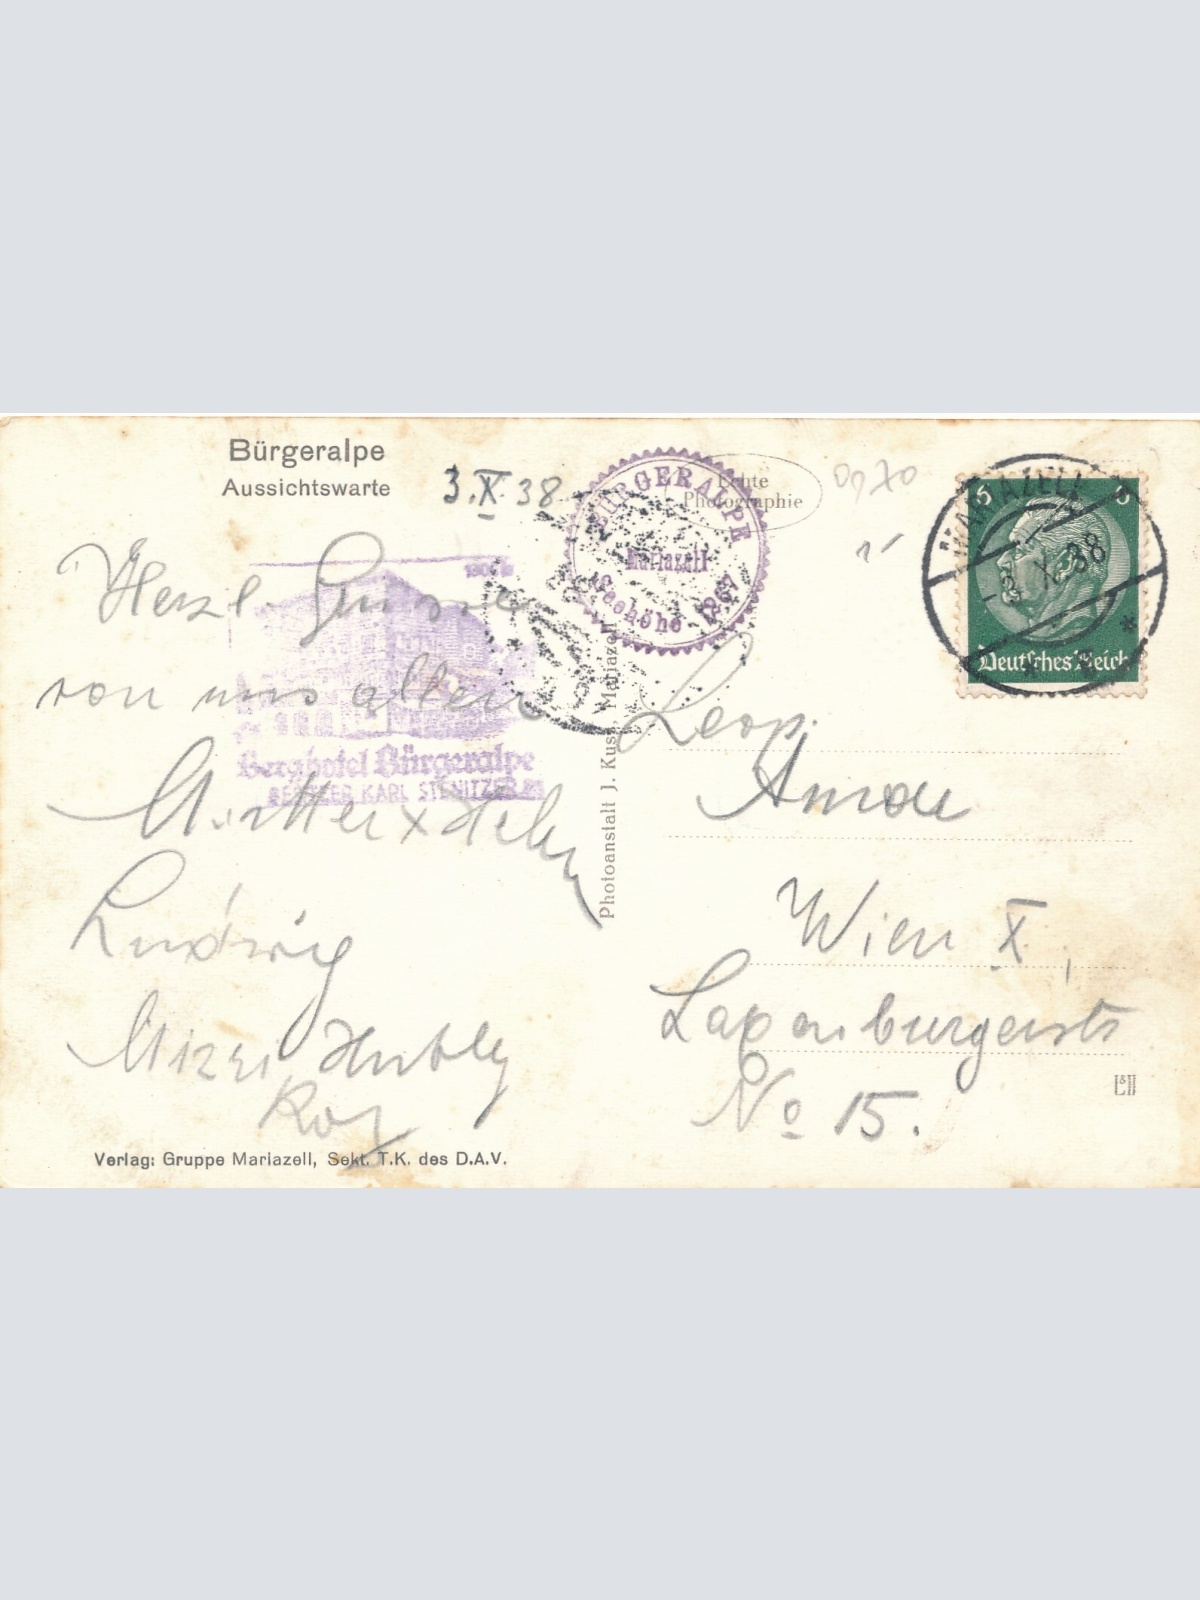 Bürgeralpe
Aussichtswarte
3.X.38
Herzl. Grüsse
von uns allen
Ludwig
Mizzi
Verlag: Gruppe Mariazell, Sekt. T.K. des D.A.V.
Berghotel Bürgeralpe
BESITZER KARL STENITZER
BÜRGERALPE
Mariazell
Seehöhe 1267
Echte
Photographie
Photoanstalt J. Kuss, Mariazell
MARIAZELL
38
5 5
Deutsches Reich
Leop.
Wien X,
Laxenburgerstr
No 15.